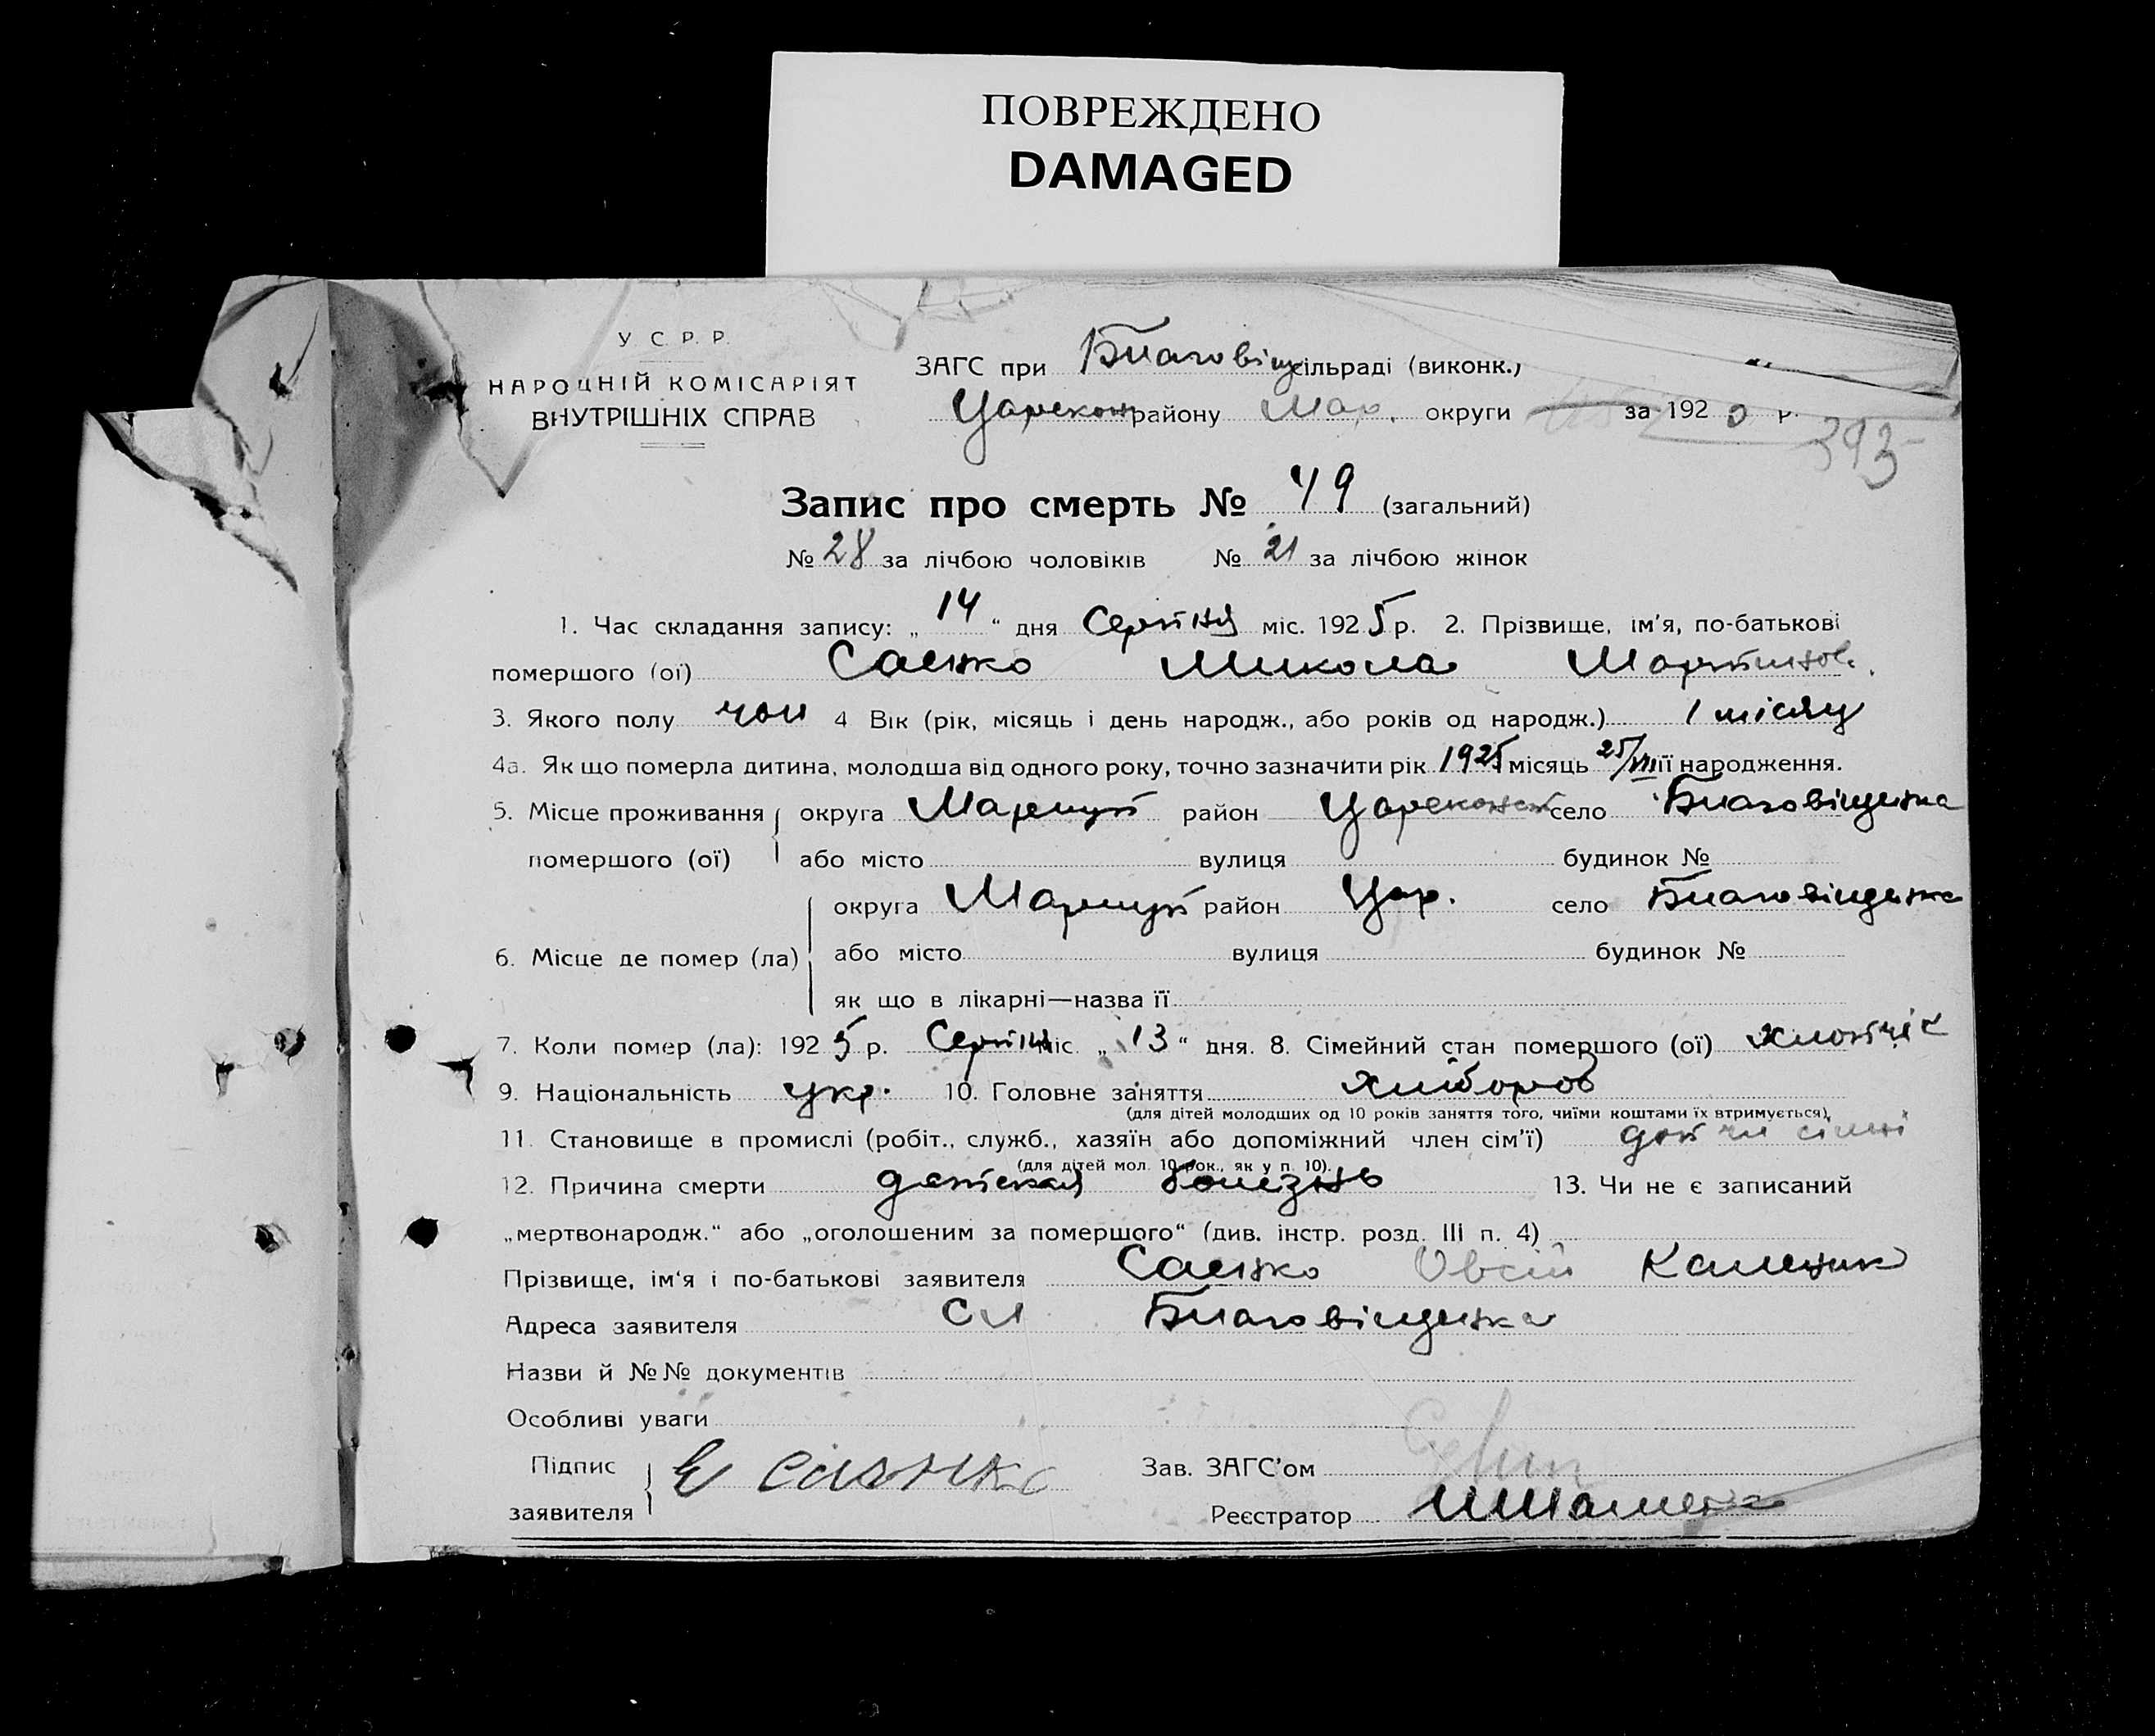 ПОВРЕЖДЕНО
DAMAGED
У. С. Р. Р.
НАРОДНІЙ КОМІСАРІЯТ
ВНУТРІШНІХ СПРАВ
ЗАГС при Благовіщ сільраді (виконк.)
Царекон району Мар. округи за 192 р.
393
Запис про смерть № 49 (загальний)
№ 28 за лічбою чоловіків № 21 за лічбою жінок
1. Час складання запису: „ 14 “ дня Серпня міс. 1925 р. 2. Прізвище, ім'я, по-батькові
помершого (ої) Саенко Микола Мартинов.
3. Якого полу чол 4 Вік (рік, місяць і день народж., або років од народж.) 1 місяц
4а. Як що померла дитина, молодша від одного року, точно зазначити рік 1925 місяць 25/VII її народження.
5. Місце проживання округа Маріюп район Цареконст село Благовіщенка
помершого (ої) або місто вулиця будинок №
округа Маріюп район Цар. село Благовіщенка
6. Місце де помер (ла) або місто вулиця будинок №
як що в лікарні—назва її
7. Коли помер (ла): 1925 р. Серпня міс. „ 13 “ дня. 8. Сімейний стан помершого (ої) хлопчік
9. Національність укр. 10. Головне заняття хлібороб
(для дітей молодших од 10 років заняття того, чиїми коштами їх втримується).
11. Становище в промислі (робіт., служб., хазяїн або допоміжний член сім'ї) доп чл сімї
(для дітей мол. 10 рок., як у п. 10).
12. Причина смерти детская болезнь 13. Чи не є записаний
„мертвонародж.“ або „оголошеним за помершого“ (див. інстр. розд. III п. 4)
Прізвище, ім'я і по-батькові заявителя Саенко Овсій
Адреса заявителя Сл Благовіщенка
Назви й №№ документів
Особливі уваги
Підпис
заявителя Е Саянко
Зав. ЗАГС'ом
Реєстратор